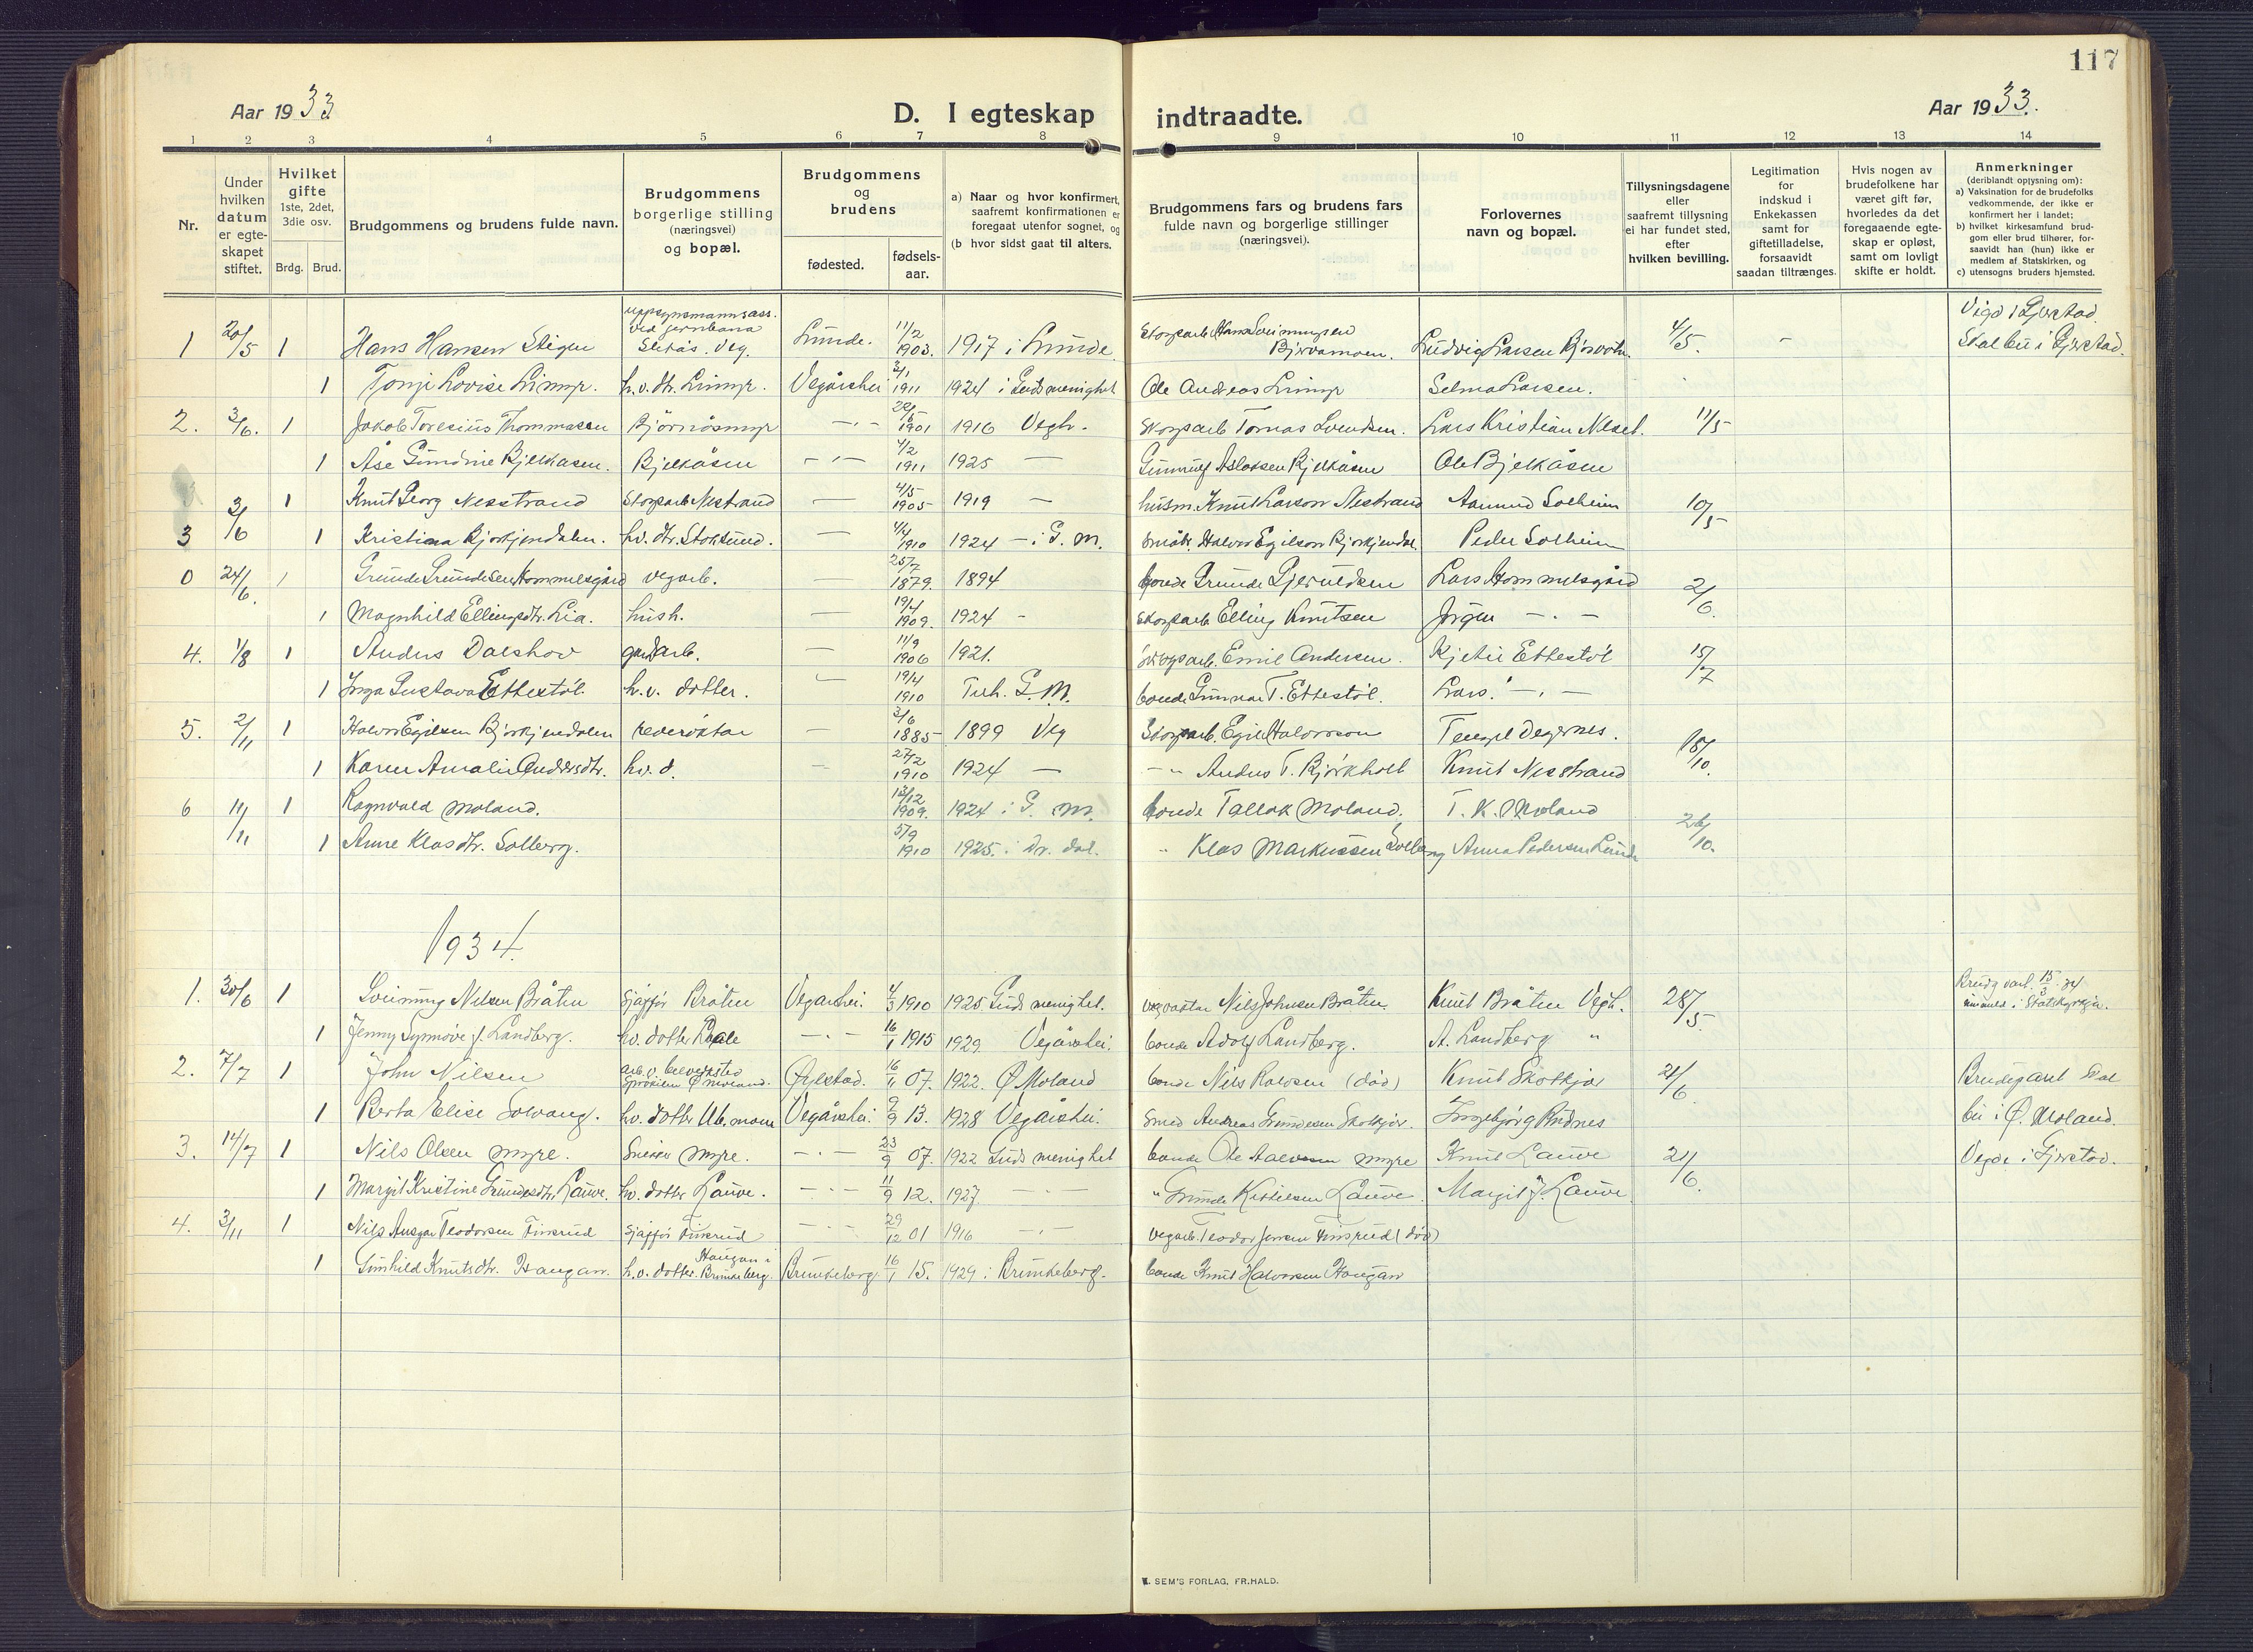 117
Aar 1933
D. I egteskap indtraadte.
Aar 1933.
1 2 3 4 5 6 7 8 9 10 11 12 13 14
Nr.
Under hvilken datum er egte-skapet stiftet.
Hvilket gifte 1ste, 2det, 3die osv.
Brdg. Brud.
Brudgommens og brudens fulde navn.
Brudgommens borgerlige stilling (næringsvei) og bopæl.
Brudgommens og brudens
fødested.
fødsels-aar.
a) Naar og hvor konfirmert, saafremt konfirmationen er foregaat utenfor sognet, og
(b hvor sidst gaat til alters.
Brudgommens fars og brudens fars fulde navn og borgerlige stillinger (næringsvei).
Forlovernes navn og bopæl.
Tillysningsdagene eller saafremt tillysning ei har fundet sted, efter hvilken bevilling.
Legitimation for indskud i Enkekassen samt for giftetilladelse, forsaavidt saadan tiltrænges.
Hvis nogen av brudefolkene har været gift før, hvorledes da det foregaaende egte-skap er opløst, samt om lovligt skifte er holdt.
Anmerkninger (deriblandt oplysning om):
a) Vaksination for de brudefolks vedkommende, der ikke er konfirmert her i landet;
b) hvilket kirkesamfund brud-gom eller brud tilhører, for-saavidt han (hun) ikke er medlem af Statskirken, og
c) utensogns bruders hjemsted.
1 20/5 1 Hans Hansen Stigen Lunde. 11/2 1903. 1917 i Lunde Ludvig Larsen 4/5. - Vigd i Gjerstad. Skal bu i Gjerstad.
1 Tonje Lovise Limyr. h.v. dtr. Limyr. Vegårshei 1911 1924 i Guds menighet Ole Andreas Limyr Selma Larsen.
2. 3/6. 1 Jakob Toresius Thommasen Bjørnåsmyr -"- 1901 1916 Vegh. Skogsarb Tomas Svendsen. Lars Kristian 11/5
1 Åse Gundine Bjelkåsen. Bjelkåsen -"- 4/2 1911 1925 — Gunnulf Aslaksen Bjelkåsen Ole Bjelkåsen
3/6 1 Knut Georg Nesstrand Skogsarb Nestrand — 4/5 1905 1919 — husm. Knut Larson Nestrand Aamund Solheim 10/5
3 1 Kristiana Bjorkjendalen. hv. dtr. Stoksund. — 4/4 1910 1924 - i G. M. Halvor Egilson Bjorkjendal. Peder Solheim
0 24/6. 1 Grunde Grundesen Hommelsgård vegarb. — 25/7 1879. 1894 bonde Grunde Gjeruldsen Lars Hommelsgård 2/6.
1 Magnhild Ellingsdtr. Lia. hush. — 19/4 1909. 1924 - Skogsarb Elling Knutsen Jørgen -"-
4. 1/8 1 Anders Dalshov gardarb. — 11/9 1906 1921. Skogsarb. Emil Andersen. Kjetil Ettestøl 15/7
1 Inga Gustava Ettestøl h.v. dotter. — 19/4 1910 G. M. bonde Gunnar T. Ettestøl. Lars. -"-
5. 2/11 1 Halvor Egilsen Bjorkjendalen reverøktar — 3/6 1885 1899 Veg Skogsarb. Egil Halvorson Degernes. 18/10.
1 Karen Amalie Andersdtr. hv. d. — 27/2 1910 1924 — -"- Anders T. Bjørkholt Knut Nesstrand
6 11/11 1 Ragnvald Moland. 13/12 1909. 1924 i G. M. bonde Tallak Moland. T. K. Moland 26/10.
1 Anne Klasdtr. Solberg. 5/9 1910 1925. i Dr. dal. " Klas Markussen Solberg Anna Pedersen Lunde
1934.
1. 30/6 1 Sveinung Nilsen Bråten Sjåffør Bråten Vegårshei. 4/3 1910 1925 Guds menighet. vegvaktar Nils Johnsen Bråten. Knut Bråten Vegh. 28/5. Brudg 15/3 34 innmeld i Statskyrkja.
1 Jenny Synnøve J. Landberg. hv. dotter -"- 16/1 1915 1929 Vegårshei. bonde Adolf Landberg. A. Landberg "
2. 7/7 1 John Nilsen Ø Moland. Gjerstad. 16/11 07. 1922. Ø Moland bonde Nils (død) Knut Skotkjær 21/6. Brudeparet skal bu i Ø. Moland.
1 Berta Elise Solvang. hv. dotter Ub. moen Vegårshei. 9/9 13. 1928 Vegårshei. Smed Andreas Gundersen Skotkjær. Ingebjørg Rudnes
3. 14/7 1 Nils Olsen Myre. Snikkar Myre. -"- 23/9 07. 1922 Guds menighet bonde Ole Myre Knut Lauve 21/6. Vigde i Gjerstad.
1 Margit Kristine Grundesdtr. Lauve. hv. dotter Lauve. -"- 11/9 12. 1927 -"- " Grunde Kittelsen Lauve. Margit J. Lauve.
4. 3/11 1 Nils Ansgar Teodorsen Finsrud sjåffør Finsrud -"- 29/12 01 1916 -"- vegarb. Teodor Jensen Finsrud (død)
1 Gunhild Knutsdtr. Haugan. h.v. dotter Haugan i Brunkeberg. Brunkeberg 16/1 15. 1929 i Brunkeberg. bonde Knut Halvorsen Haugan
E. SEM'S FORLAG, FR.HALD.